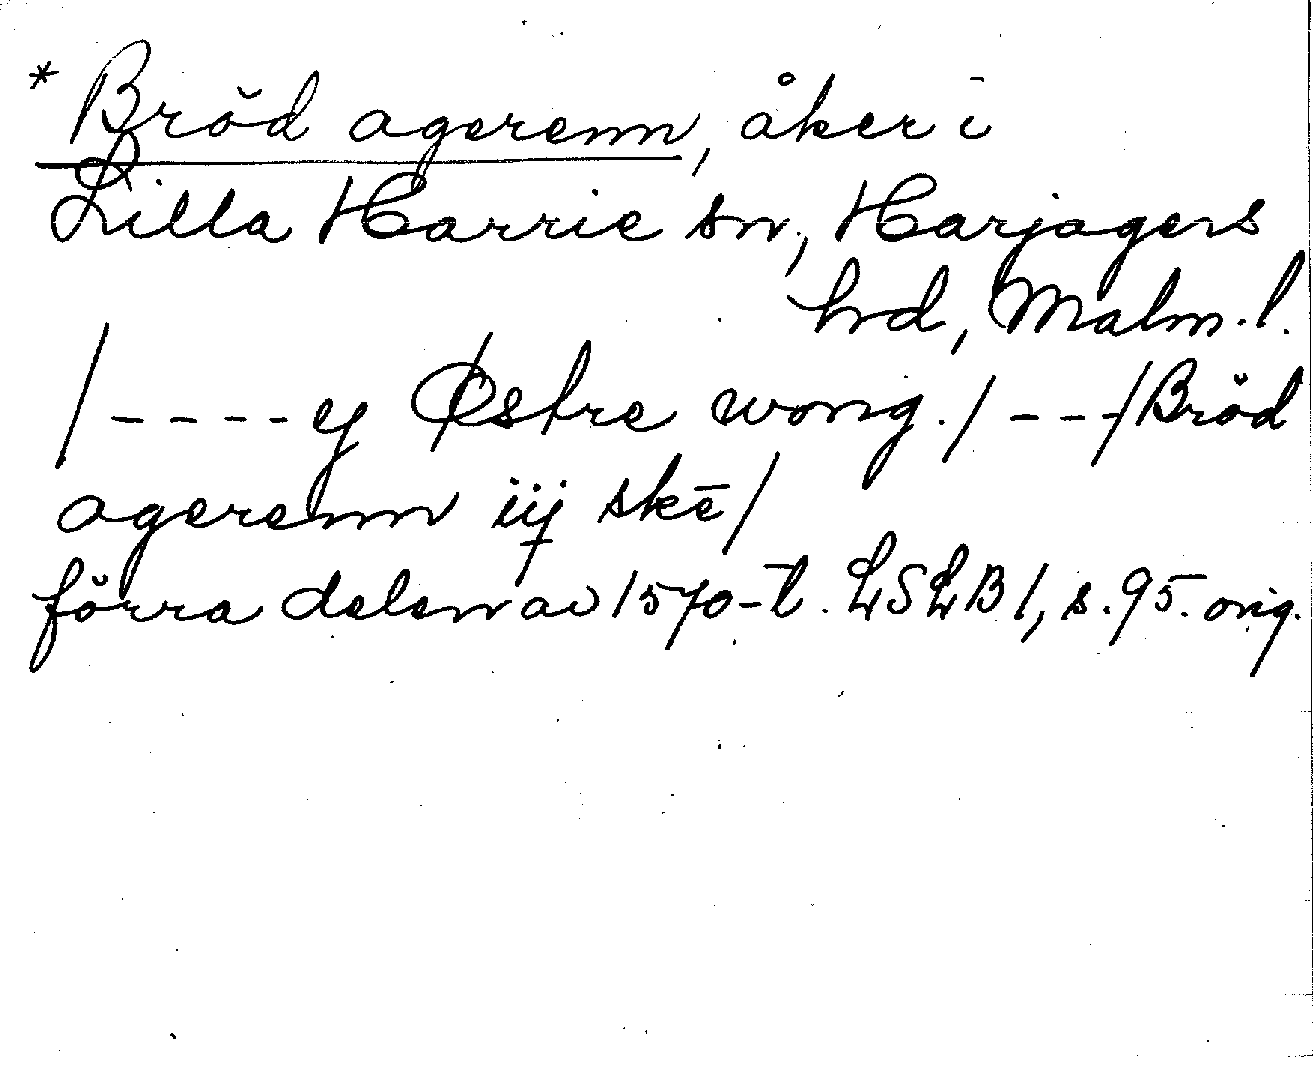 * Brŏd agerenn, åker i
Lilla Harrie sn, Harjagers
hrd, Malm.l.
/----ej Østre wong./---/Brŏd
agerenn iij skē/
förra delen av 1570-t. LSLB 1, s.95. orig.